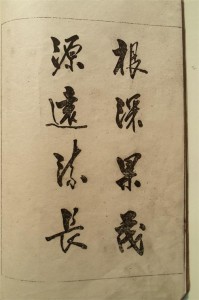 根深果茂
源遠流長